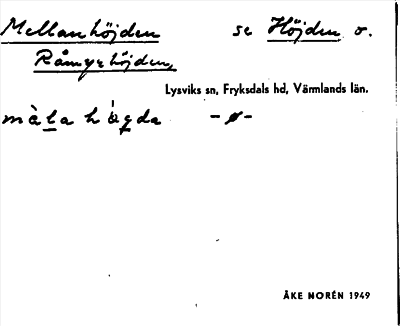 Mellanhöjden se Höjden o.
Rångehöjden,
Lysviks sn, Fryksdals hd, Värmlands län.
màla hógda -ø-
ÅKE NORÉN 1949